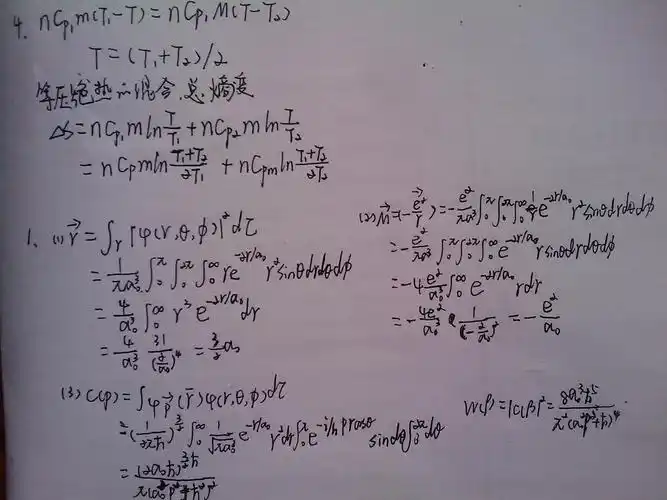 4. nCp,m(T₁-T) = nCp,M(T-T₂)
T = (T₁+T₂)/2
等压绝热的混合,总熵变
ΔS = nCp,m ln T/T₁ + nCp,m ln T/T₂
= nCpm ln (T₁+T₂)/2T₁ + nCpm ln (T₁+T₂)/2T₂
1. (1) r⃗ = ∫r |φ(r,θ,ϕ)|² dτ
= 1/πa₀³ ∫₀^π ∫₀^2π ∫₀^∞ re^(-2r/a₀) r² sinθdrdθdϕ
= 4/a₀³ ∫₀^∞ r³ e^(-2r/a₀) dr
= 4/a₀³ 3!/(2/a₀)⁴ = 3/2 a₀
(2) M⃗ = (-e²/r) = -e²/πa₀³ ∫₀^π ∫₀^2π ∫₀^∞ 1/r e^(-2r/a₀) r² sinθdrdθdϕ
= -e²/πa₀³ ∫₀^π ∫₀^2π ∫₀^∞ e^(-2r/a₀) r sinθdrdθdϕ
= -4e²/a₀³ ∫₀^∞ e^(-2r/a₀) rdr
= -4e²/a₀³ 1/(-2/a₀)² = -e²/a₀
(3) C(p) = ∫φp⃗ (r⃗) φ(r,θ,ϕ) dτ
= (1/2πħ)^(3/2) ∫₀^∞ 1/√πa₀³ e^(-r/a₀) r²dr ∫₀^π e^(-i/ħ prcosθ) sinθdθ ∫₀^2π dθ
= (2a₀ħ)^(3/2) ħ / π(a₀²p²+ħ²)²
W(p) = |C(p)|² = 8a₀³ħ⁵ / π²(a₀²p²+ħ²)⁴